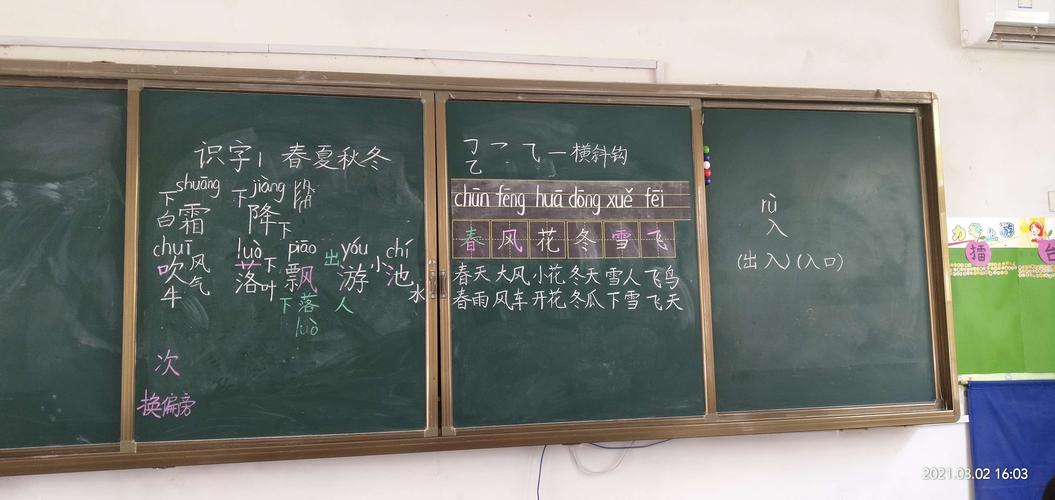 识字1 春夏秋冬
shuāng jiàng
下 下 降
白霜 降下
chuī luò piāo yóu chí
吹风 落下 飘 出 游 小池
牛 气 叶 水
下落 人
luò
次
换偏旁
㇆ ㇖ ㇈ 一 横斜钩
⺄
chūn fēng huā dōng xuě fēi
春 风 花 冬 雪 飞
春天 大风 小花 冬天 雪人 飞鸟
春雨 风车 开花 冬瓜 下雪 飞天
rù
入
(出入)(入口)
力争上游
擂 台
2021.03.02 16:03